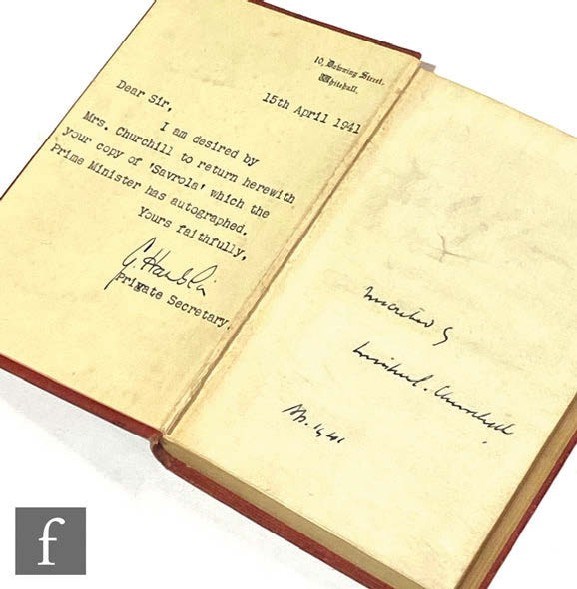 10, Downing Street,
Whitehall.
15th April 1941
Dear Sir,
I am desired by
Mrs. Churchill to return herewith
your copy of 'Savrola' which the
Prime Minister has autographed.
Yours faithfully,
Private Secretary.
Inscribed by
Winston S. Churchill
Ap. 1941
f